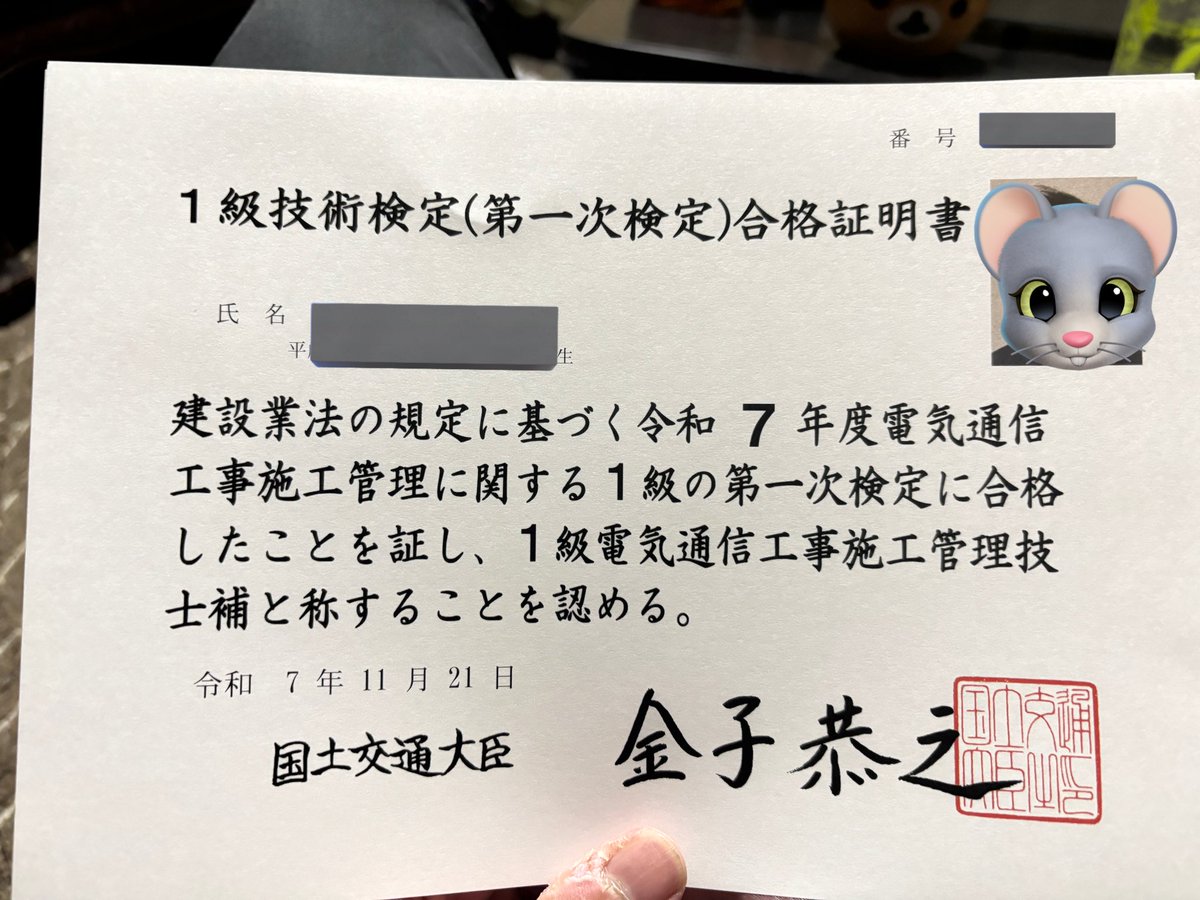 番号
1級技術検定(第一次検定)合格証明書
氏名
平
生
建設業法の規定に基づく令和 7 年度電気通信
工事施工管理に関する1級の第一次検定に合格
したことを証し、1級電気通信工事施工管理技
士補と称することを認める。
令和 7 年 11 月 21 日
国土交通大臣 金子恭之